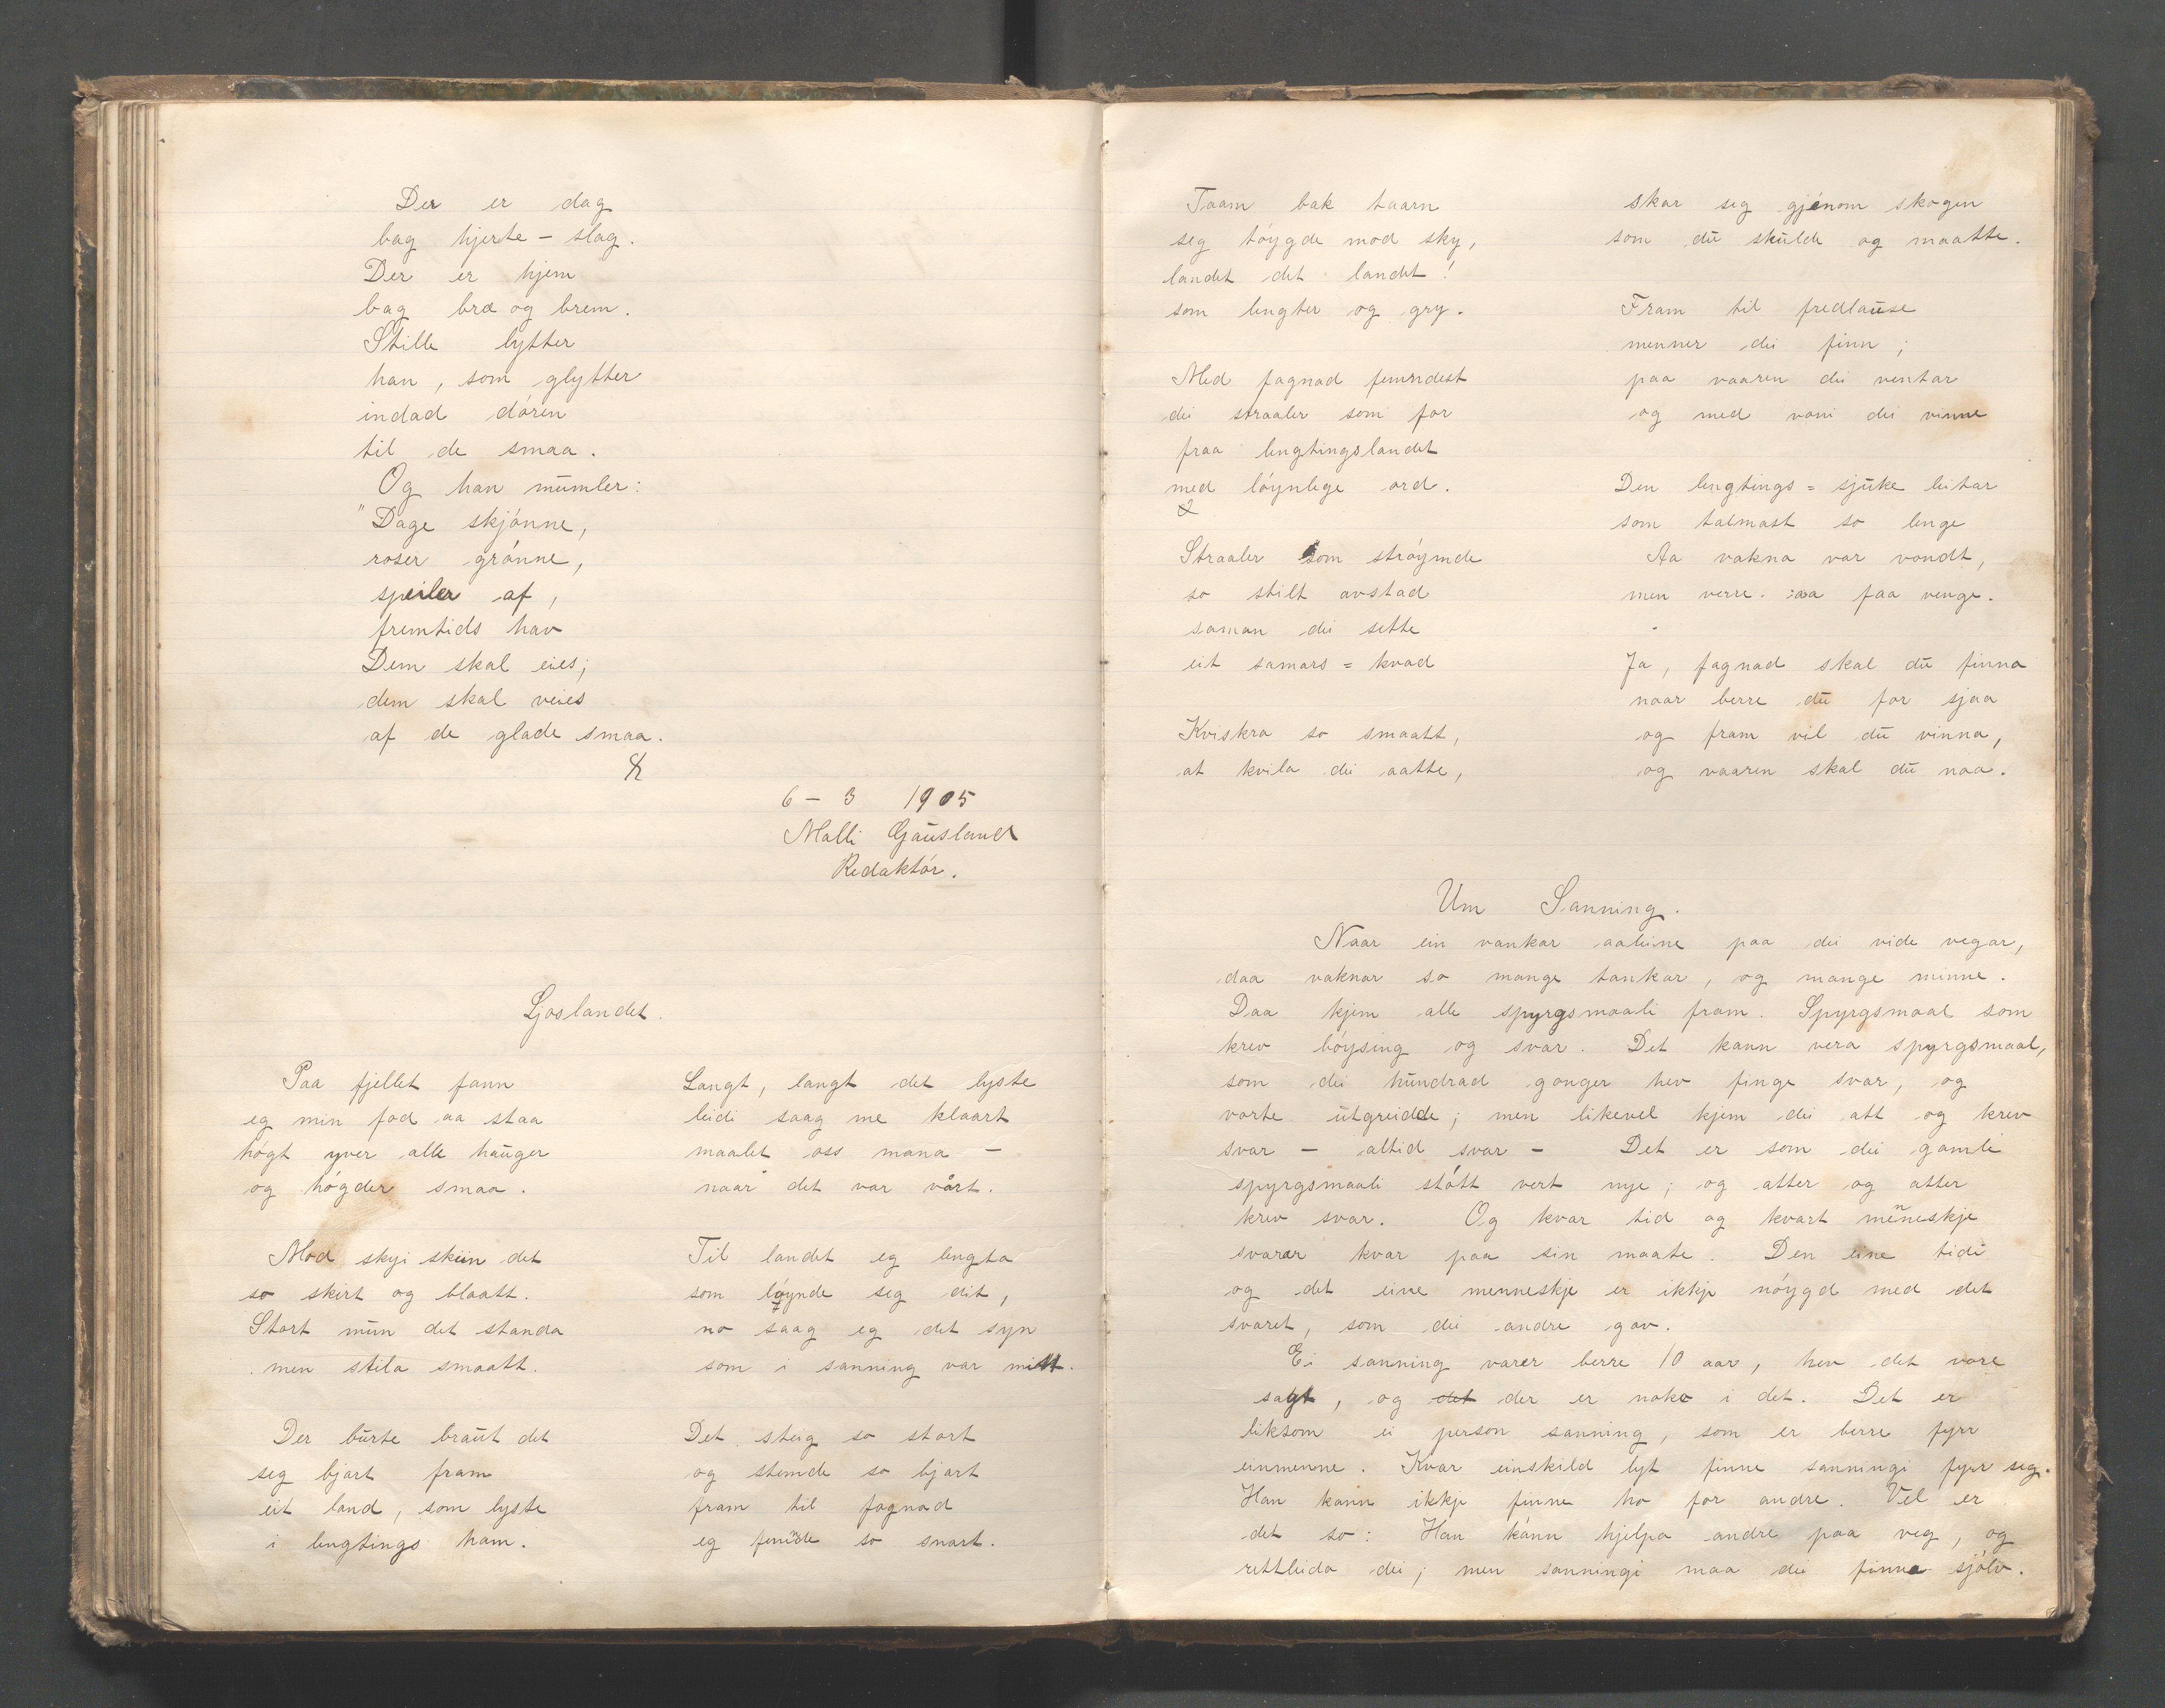 Der er dag
bag hjerte - slag.
Der er hjem
bag bræ og brem.
Stille lytter
han, som glytter
indad døren
til de smaa.
Og han mumler:
"Dage skjønne,
roser grønne,
speiler af,
fremtids hav
Dem skal eies;
dem skal veies
af de glade smaa.
6 - 3 1905
Malli Gausland
Redaktør.
Ljoslandet.
Paa fjellet fann
eg min fod aa staa
høgt yver alle hauger
og høgder smaa.
Mod skyi skiin det
so skirt og blaatt.
Stort mun det standa
men stila smaatt.
Der burte braut det
seg bjart fram
eit land, som lyste
i lengtings ham.
Langt, langt det lyste
leidi saag me klaart
maalet oss mana -
naar det var vårt.
Til landet eg lengta
som løynde seg dit,
no saag eg det syn
som i sanning var mitt.
Det steig so stort
og stemde so bjart
fram til fagnad
eg femnde so snart.
Taam bak taarn
seg tøygde mod sky,
landet det landet!
som lengter og gry.
Med fagnad femndest
dei straaler som for
fraa lengtingslandet
med løynlege ord.
Straaler som strøymde
so stilt avstad
saman dei sette
eit samars = kvad
Kviskra so smaatt,
at kvila dei aatte,
skar seg gjenom skogen
som du skulde og maatte.
Fram til fredlause
menner dei finn;
paa vaaren dei ventar
og med voni dei vinne
Den lengtings = sjuke leitar
som talmast so lenge
Aa vakna var vondt,
men verre aa faa venge.
Ja, fagnad skal du finna
naar berre du for sjaa
og fram vil du vinna,
og vaaren skal du naa.
Um Sanning.
Naar ein vankar aaleine paa dei vide vegar,
daa vaknar so mange tankar, og mange minne.
Daa kjem alle spyrgsmaali fram. Spyrgsmaal som
krev løysing og svar. Det kann vera spyrgsmaal,
som dei hundrad gonger hev finge svar, og
vorte utgreidde; men likevel kjem dei att og krev
svar - altid svar - Det er som dei gamli
spyrgsmaali støtt vert nye; og atter og atter
krev svar. Og kvar tid og kvart menneskje
svarar kvar paa sin maate. Den eine tidi
og det eine menneskje er ikkje nøygd med det
svaret, som dei andre gav.
Ei sanning varer berre 10 aar, hev det vore
sagt, og det der er noko i det. Det er
liksom ei person sanning, som er berre fyrr
einmenne. Kvar einskild lyt finne sanningi fyrr seg.
Han kann ikkje finne ho for andre. Vel er
det so: Han kann hjelpa andre paa veg, og
rettleida dei; men sanningi maa dei finna sjølv.